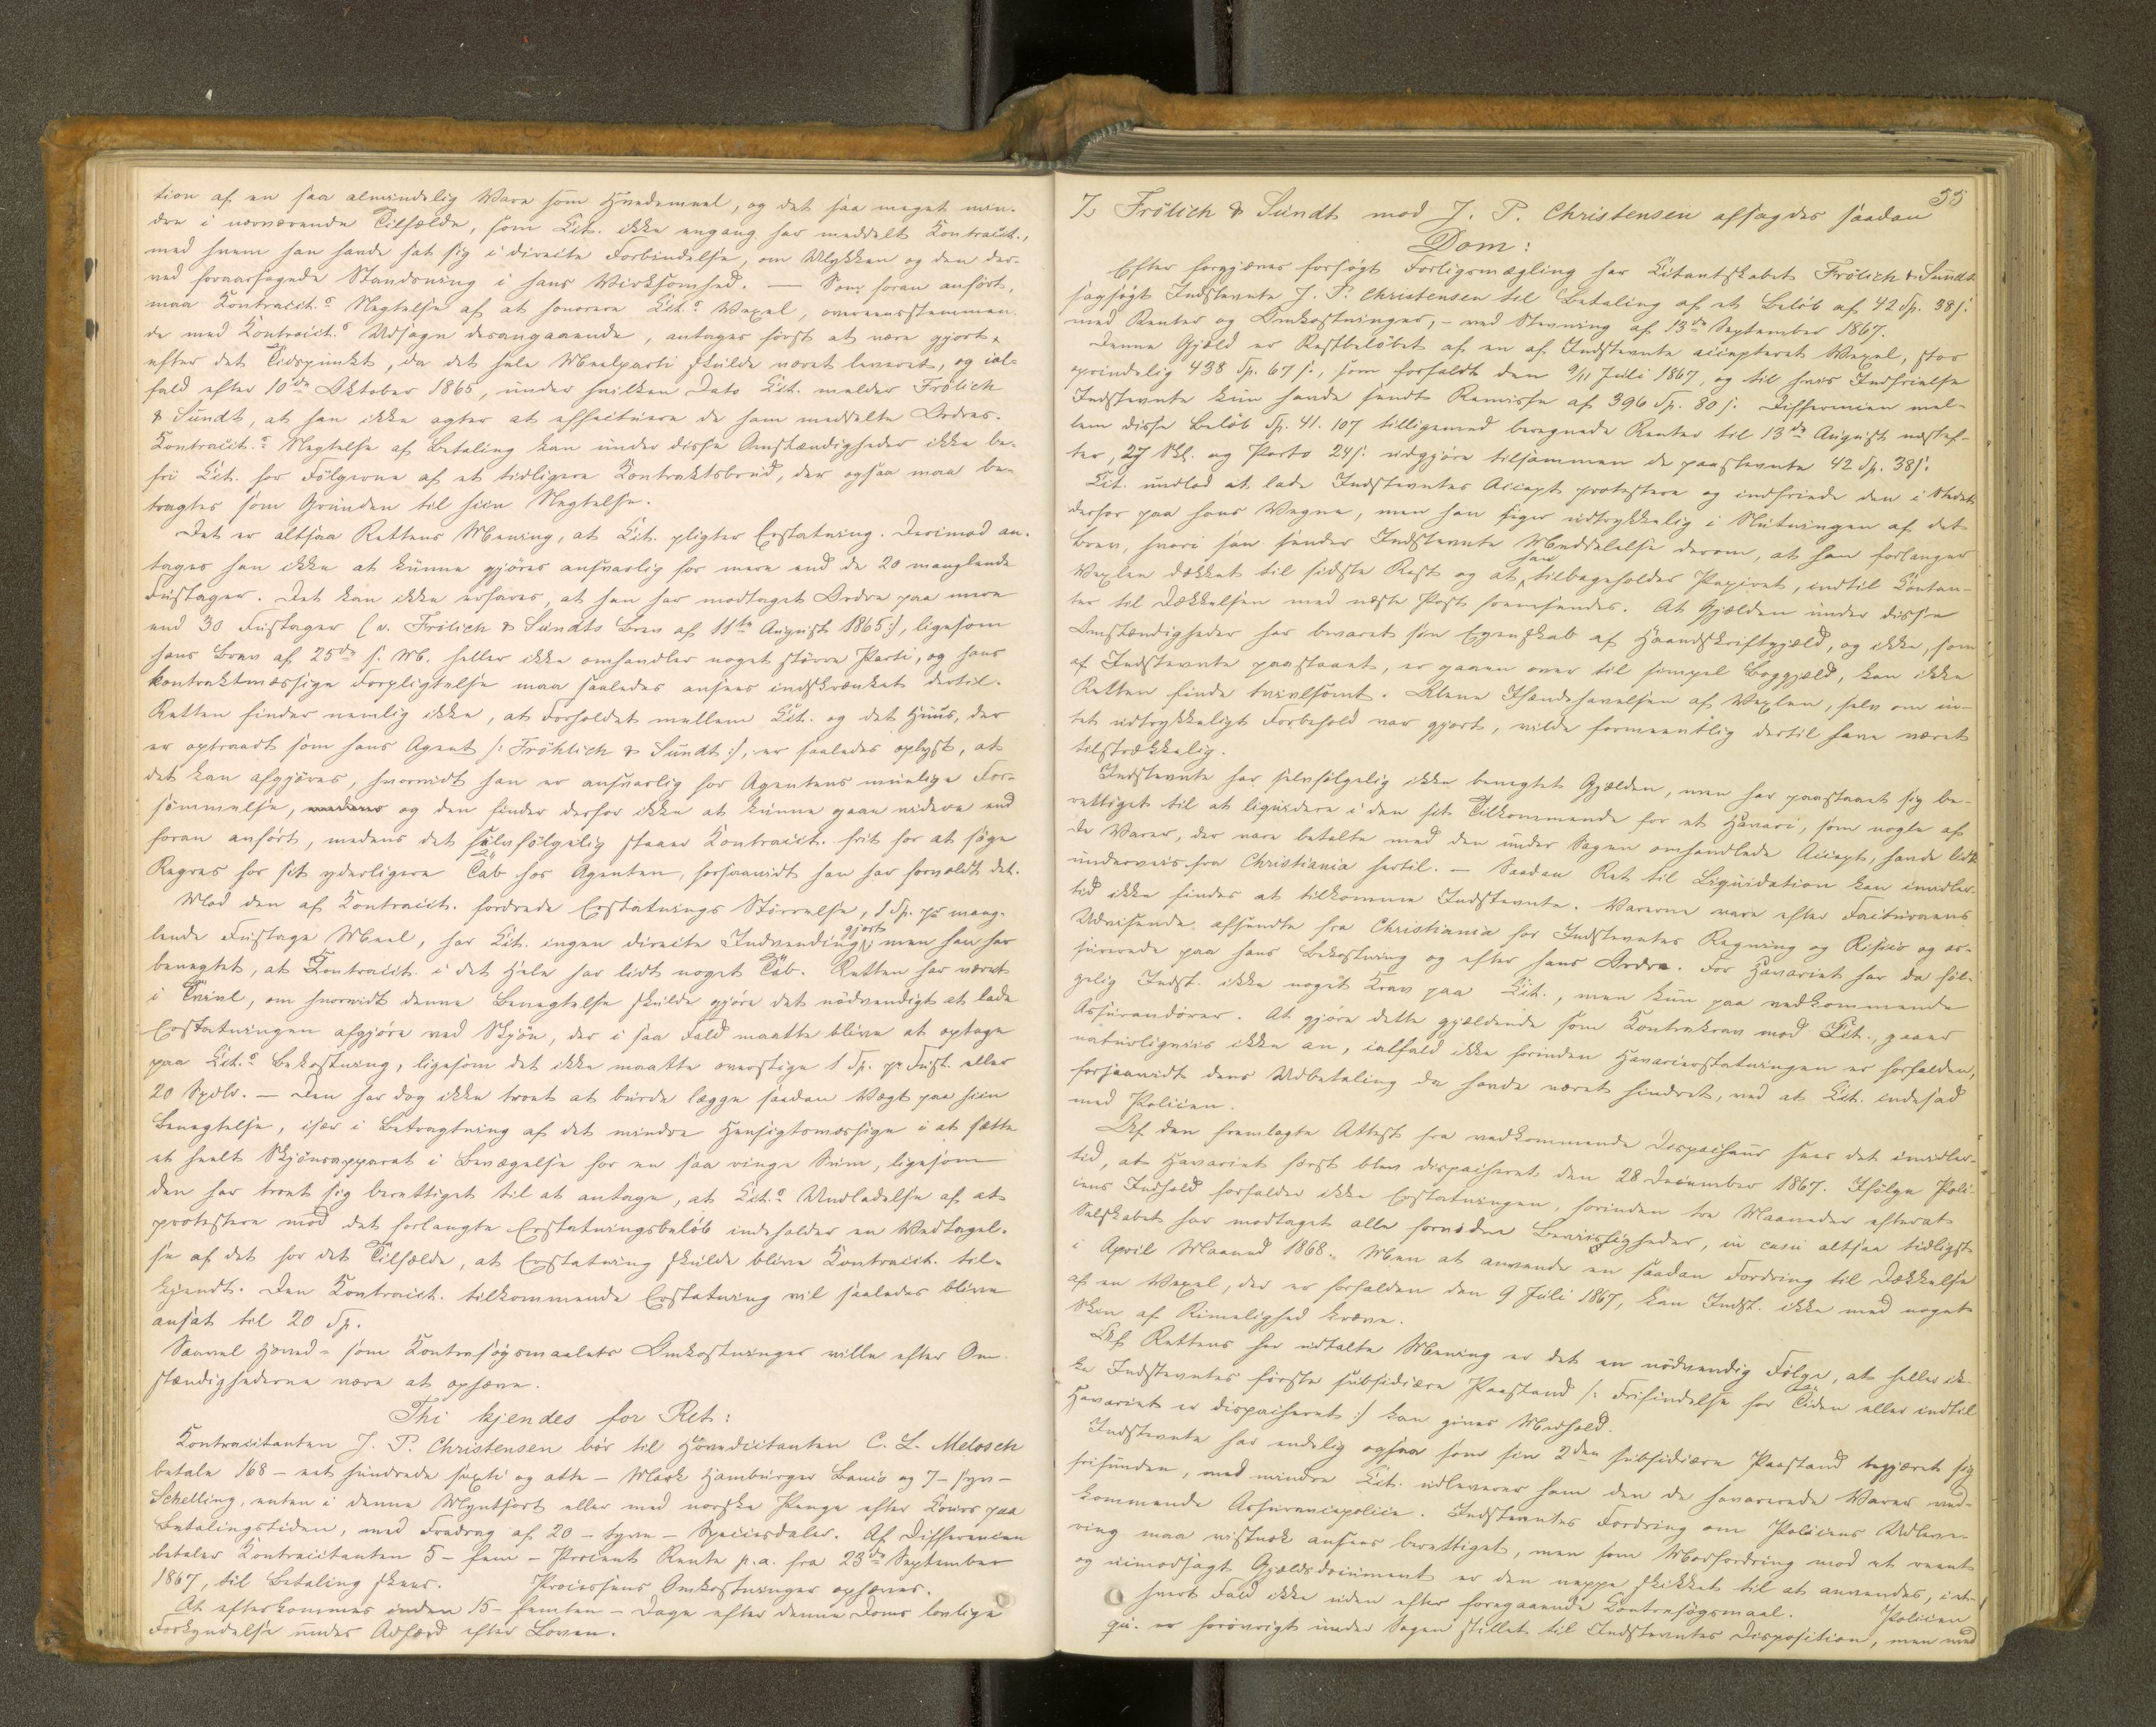 tion af en saa almindelig Vare som Hvedemeel, og det saa meget min-
dre i nærværende Tilfælde, som Cit. ikke engang har meddelt Contracit.,
med hvem han havde sat sig i directe Forbindelse, om Ulykken og den der-
ved foraarsagede Standsning i hans Virksomhed. — Som foran anført,
maa Kontracit.s Negtelse af at honorere Cit.s Vexel, overeensstemmen-
de med Kontracit.s Udsagn desangaaende, antages først at være gjort
efter det Tidspunkt, da det hele Meelparti skulde været leveret, og ial-
fald efter 10de Oktober 1865, under hvilken Dato Cit. melder Frölich
& Sundt, at han ikke agter at effectuere de ham meddelte Ordres.
Kontracit.s Negtelse af Betaling kan under disse Omstændigheder ikke be-
fri Cit. for Følgerne af et tidligere Kontraktsbrud, der ogsaa maa be-
tragtes som Grunden til hiin Negtelse.
Det er altsaa Rettens Mening, at Cit. pligter Erstatning. Derimod an-
tages han ikke at kunne gjøres ansvarlig for mere end de 20 manglende
Fustager. Det kan ikke erfares, at han har modtaget Ordre paa mere
end 30 Fustager (v. Frölich & Sundts Brev af 11te August 1865:), ligesom
hans Brev af 25de s. M. heller ikke omhandler noget større Parti, og hans
kontraktmæssige Forpligtelse maa saaledes ansees indskrænket dertil.
Retten finder nemlig ikke, at Forholdet mellem Cit. og det Huus, der
er optraadt som hans Agent /: Fröhlich & Sundt :/, er saaledes oplyst, at
det kan afgjøres, hvorvidt han er ansvarlig for Agentens muelige For-
sømmelse, medens og den finder derfor ikke at kunne gaae videre end
foran anført, medens det selvfølgelig staaer Kontracit. frit for at søge
Regres for sit yderligere Tab hos Agenten, forsaavidt han har forvoldt det.
Mod den af Kontracit. fordrede Erstatnings Størrelse, 1 Sp. pr mang-
lende Fustage Meel, har Cit. ingen directe Indvending gjort; men han har
benegtet, at Kontracit. i det Hele har lidt noget Tab. Retten har været
i Tvivl, om hvorvidt denne Benegtelse skulde gjøre det nødvendigt at lade
Erstatningen afgjøre ved Skjøn, der i saa Fald maatte blive at optage
paa Cit.s Bekostning, ligesom det ikke maatte overstige 1 Sp. pr. Fust. eller
20 Spdlr. — Den har dog ikke troet at burde lægge saadan Vægt paa hiin
Benegtelse, især i Betragtning af det mindre Hensigtsmæssige i at sætte
et heelt Skjønsapparat i Bevægelse for en saa ringe Sum, ligesom
den har troet sig berettiget til at antage, at Cit.s Undladelse af at
protestere mod det forlangte Erstatningsbeløb indeholder en Vedtagel-
se af det for det Tilfælde, at Erstatning skulde blive Kontracit. til-
kjendt. Den Kontracit. tilkommende Erstatning vil saaledes blive
ansat til 20 Sp.
Saavel Hoved- som Kontrasøgsmaalets Omkostninger ville efter Om-
stændighederne være at ophæve.
Thi kjendes for Ret:
Kontracitanten J. P. Christensen bør til Hovedcitanten C. L. Melosch
betale 168 – eet hundrede sexti og otte – Mark Hamburger Banco og 7 – syv –
Schelling, enten i denne Myntsort eller med norske Penge efter Cours paa
Betalingstiden, med Fradrag af 20 – tyve – Speciesdaler. Af Differencen
betaler Kontracitanten 5 – fem – Procent Rente p. a. fra 23de September
1867, til Betaling skeer. Processens Omkostninger ophæves.
At efterkommes inden 15 – femten – Dage efter denne Doms lovlige
Forkyndelse under Adfærd efter Loven.
55
7. Frölich & Sundt mod J. P. Christensen afsagdes saadan
Dom:
Efter forgjæves forsøgt Forligsmægling har Citantskabet Frölich & Sundt
sagsøgt Indstevnte J. P. Christensen til Betaling af et Beløb af 42 Sp. 38 s.
med Renter og Omkostninger, – ved Stevning af 13de September 1867.
Denne Gjæld er Restbeløbet af en af Indstevnte accepteret Vexel, stor
oprindelig 438 Sp. 67 s., som forfaldt den 9/11 Juli 1867, og til hvis Indfrielse
Indstevnte kun havde sendt Remisse af 396 Sp. 80 s. Differencen mel-
lem disse Beløb Sp. 41. 107 tilligemed beregnede Renter til 13de August næstef-
ter, 27 Skl. og Porto 24 s. udgjøre tilsammen de paastevnte 42 Sp. 38 s.
Cit. undlod at lade Indstevntes Accept protestere og indfriede den i Stedet
derfor paa hans Vegne, men han siger udtrykkelig i Slutningen af det
Brev, hvori han sender Indstevnte Meddelelse derom, at han forlanger
Vexlen dækket til sidste Rest og at han tilbageholder Papiret, indtil Contan-
ter til Dækkelsen med næste Post fremsendes. At Gjælden under disse
Omstændigheder har bevaret sin Egenskab af Haandskriftgjæld, og ikke, som
af Indstevnte paastaaet, er gaaen over til simpel Boggjæld, kan ikke
Retten finde tvivlsomt. Alene Ihændehavelsen af Vexlen, selv om in-
tet udtrykkeligt Forbehold var gjort, vilde formeentlig dertil have været
tilstrækkelig.
Indstevnte har selvfølgelig ikke benegtet Gjælden, men har paastaaet sig be-
rettiget til at liquidere i den sit Tilkommende for et Havari, som nogle af
de Varer, der vare betalte med den under Sagen omhandlede Accept, havde lidt
underveis fra Christiania hertil. — Saadan Ret til Liquidation kan imidler-
tid ikke findes at tilkomme Indstevnte. Varerne vare efter Facturaens
Udvisende afsendte fra Christiania for Indstevntes Regning og Risico og as-
surerede paa hans Bekostning og efter hans Ordre. For Havariet har da føl-
gelig Indst. ikke noget Krav paa Cit., men kun paa vedkommende
Assurandører. At gjøre dette gjældende som Kontrakrav mod Cit., gaaer
naturligviis ikke an, ialfald ikke forinden Havarierstatningen er forfalden,
forsaavidt dens Udbetaling da havde været hindret, ved at Cit. indesad
med Policen.
Af den fremlagte Attest fra vedkommende Dispacheur sees det imidler-
tid, at Havariet først blev dispacheret den 28 December 1867. Ifølge Poli-
cens Indhold forfalder ikke Erstatningen, forinden tre Maaneder efterat
Selskabet har modtaget alle fornødne Beviisligheder, in casu altsaa tidligst
i April Maaned 1868. Men at anvende en saadan Fordring til Dækkelse
af en Vexel, der er forfalden den 9 Juli 1867, kan Indst. ikke med noget
Skin af Rimelighed kræve.
Af Rettens her udtalte Mening er det en nødvendig Følge, at heller ik-
ke Indstevntes første subsidiære Paastand /: Frifindelse for Tiden eller indtil
Havariet er dispacheret :/ kan gives Medhold.
Indstevnte har endelig ogsaa som sin 2den subsidiære Paastand begjæret sig
frifunden, med mindre Cit. udleverer ham den de havarerede Varer ved-
kommende Assurancepolice. Indstevntes Fordring om Policens Udleve-
ring maa vistnok ansees berettiget, men som Modfordring mod et reent
og uimodsagt Gjældsdocument er den neppe skikket til at anvendes, i et-
hvert Fald ikke uden efter foregaaende Contrasøgsmaal. Policen
qu. er forøvrigt under Sagen stillet til Indstevntes Disposition, men med